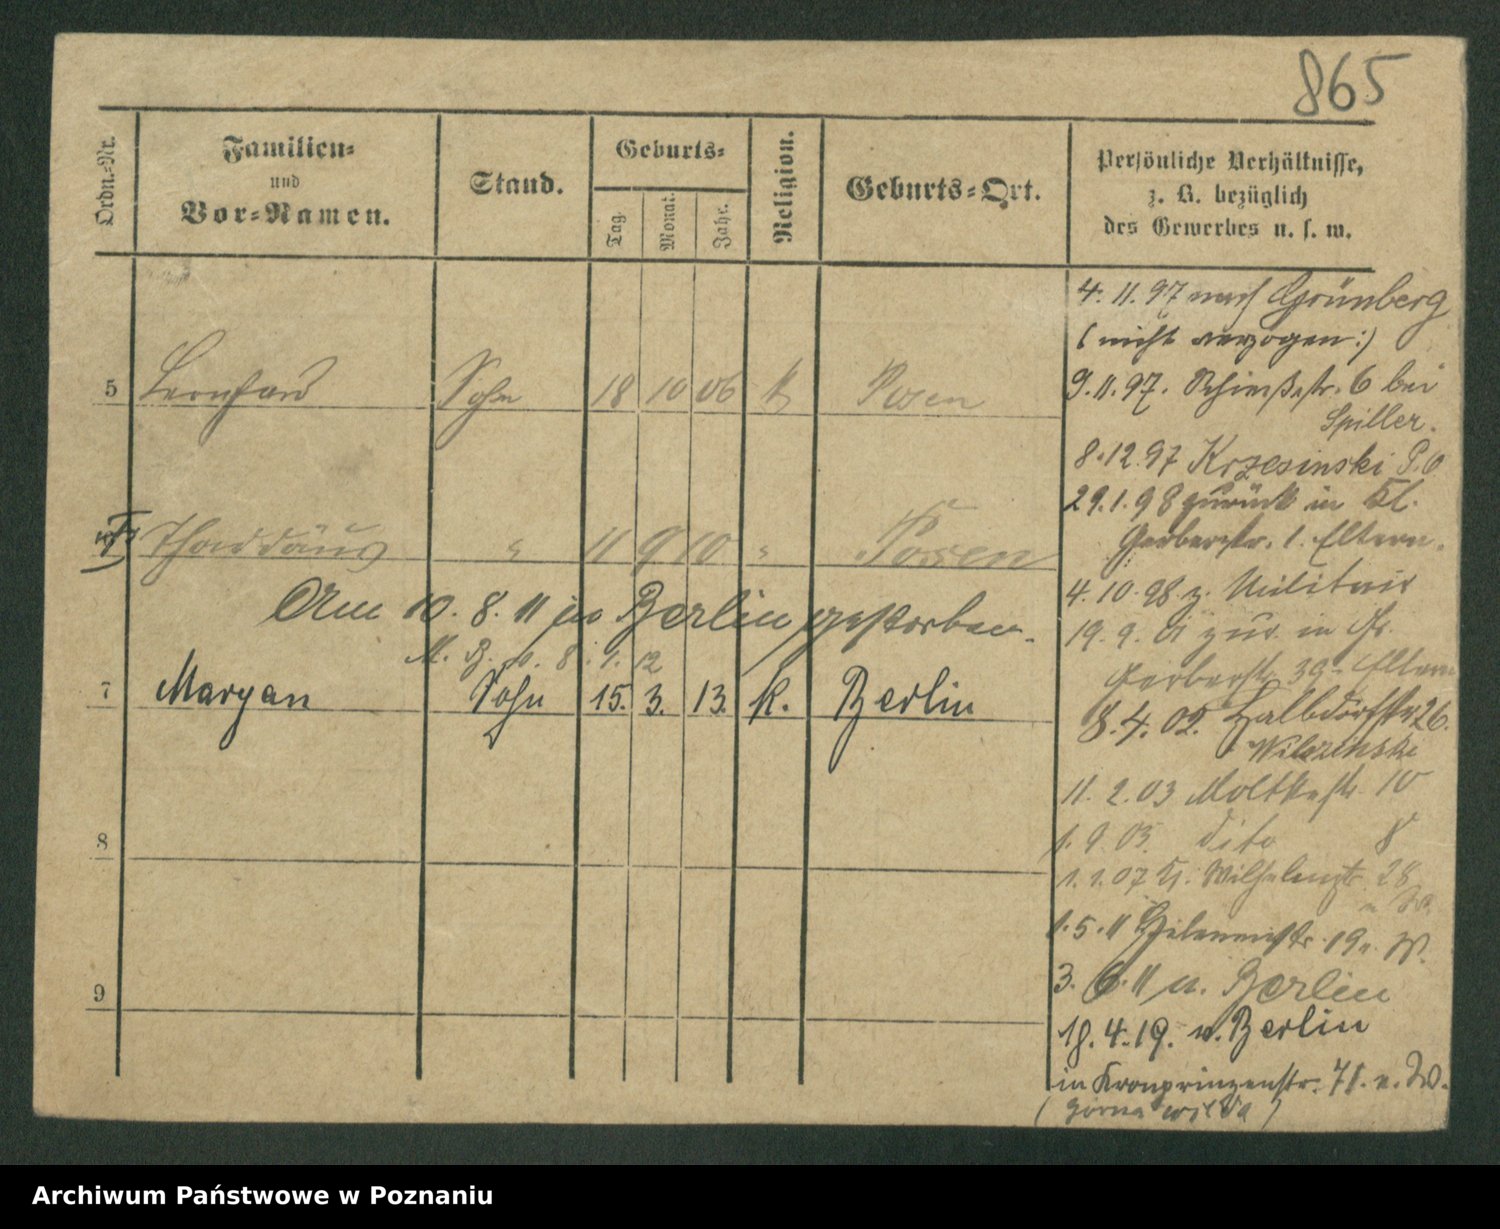 865
Ordn.-Nr.
Familien-
und
Vor-Namen.
Stand.
Geburts-
Tag.
Monat.
Jahr.
Religion.
Geburts-Ort.
Persönliche Verhältnisse,
z. B. bezüglich
des Gewerbes u. s. w.
5 Bernhard Sohn 18 10 06 k Posen
Thaddäus " 11 9 10 " Posen
Am 10. 8. 11 in Berlin gestorben.
7 Maryan Sohn 15. 3. 13. k. Berlin
8
9
4. 11. 97 nach Grünberg
(nicht verzogen:)
9. 11. 97. 6 bei
Spiller.
8. 12. 97 Krzesinski P. O
29. 1. 98 zurück in Kl.
Gerberstr. 1. Eltern.
4. 10. 98 z. Militair
19. 9. 01 zur. in Gr.
Gerberstr. 39 Eltern
8. 4. 02. Halbdorfstr 26.
11. 2. 03 Moltkestr. 10
1. 9. 05. dito 8
1. 1. 07 Kl. 28
1. 5. 11 19. W.
3. 6. 11 n. Berlin
18. 4. 19. v. Berlin
in Kronprinzenstr. 71. v. W.
(górna wilda)
Archiwum Państwowe w Poznaniu